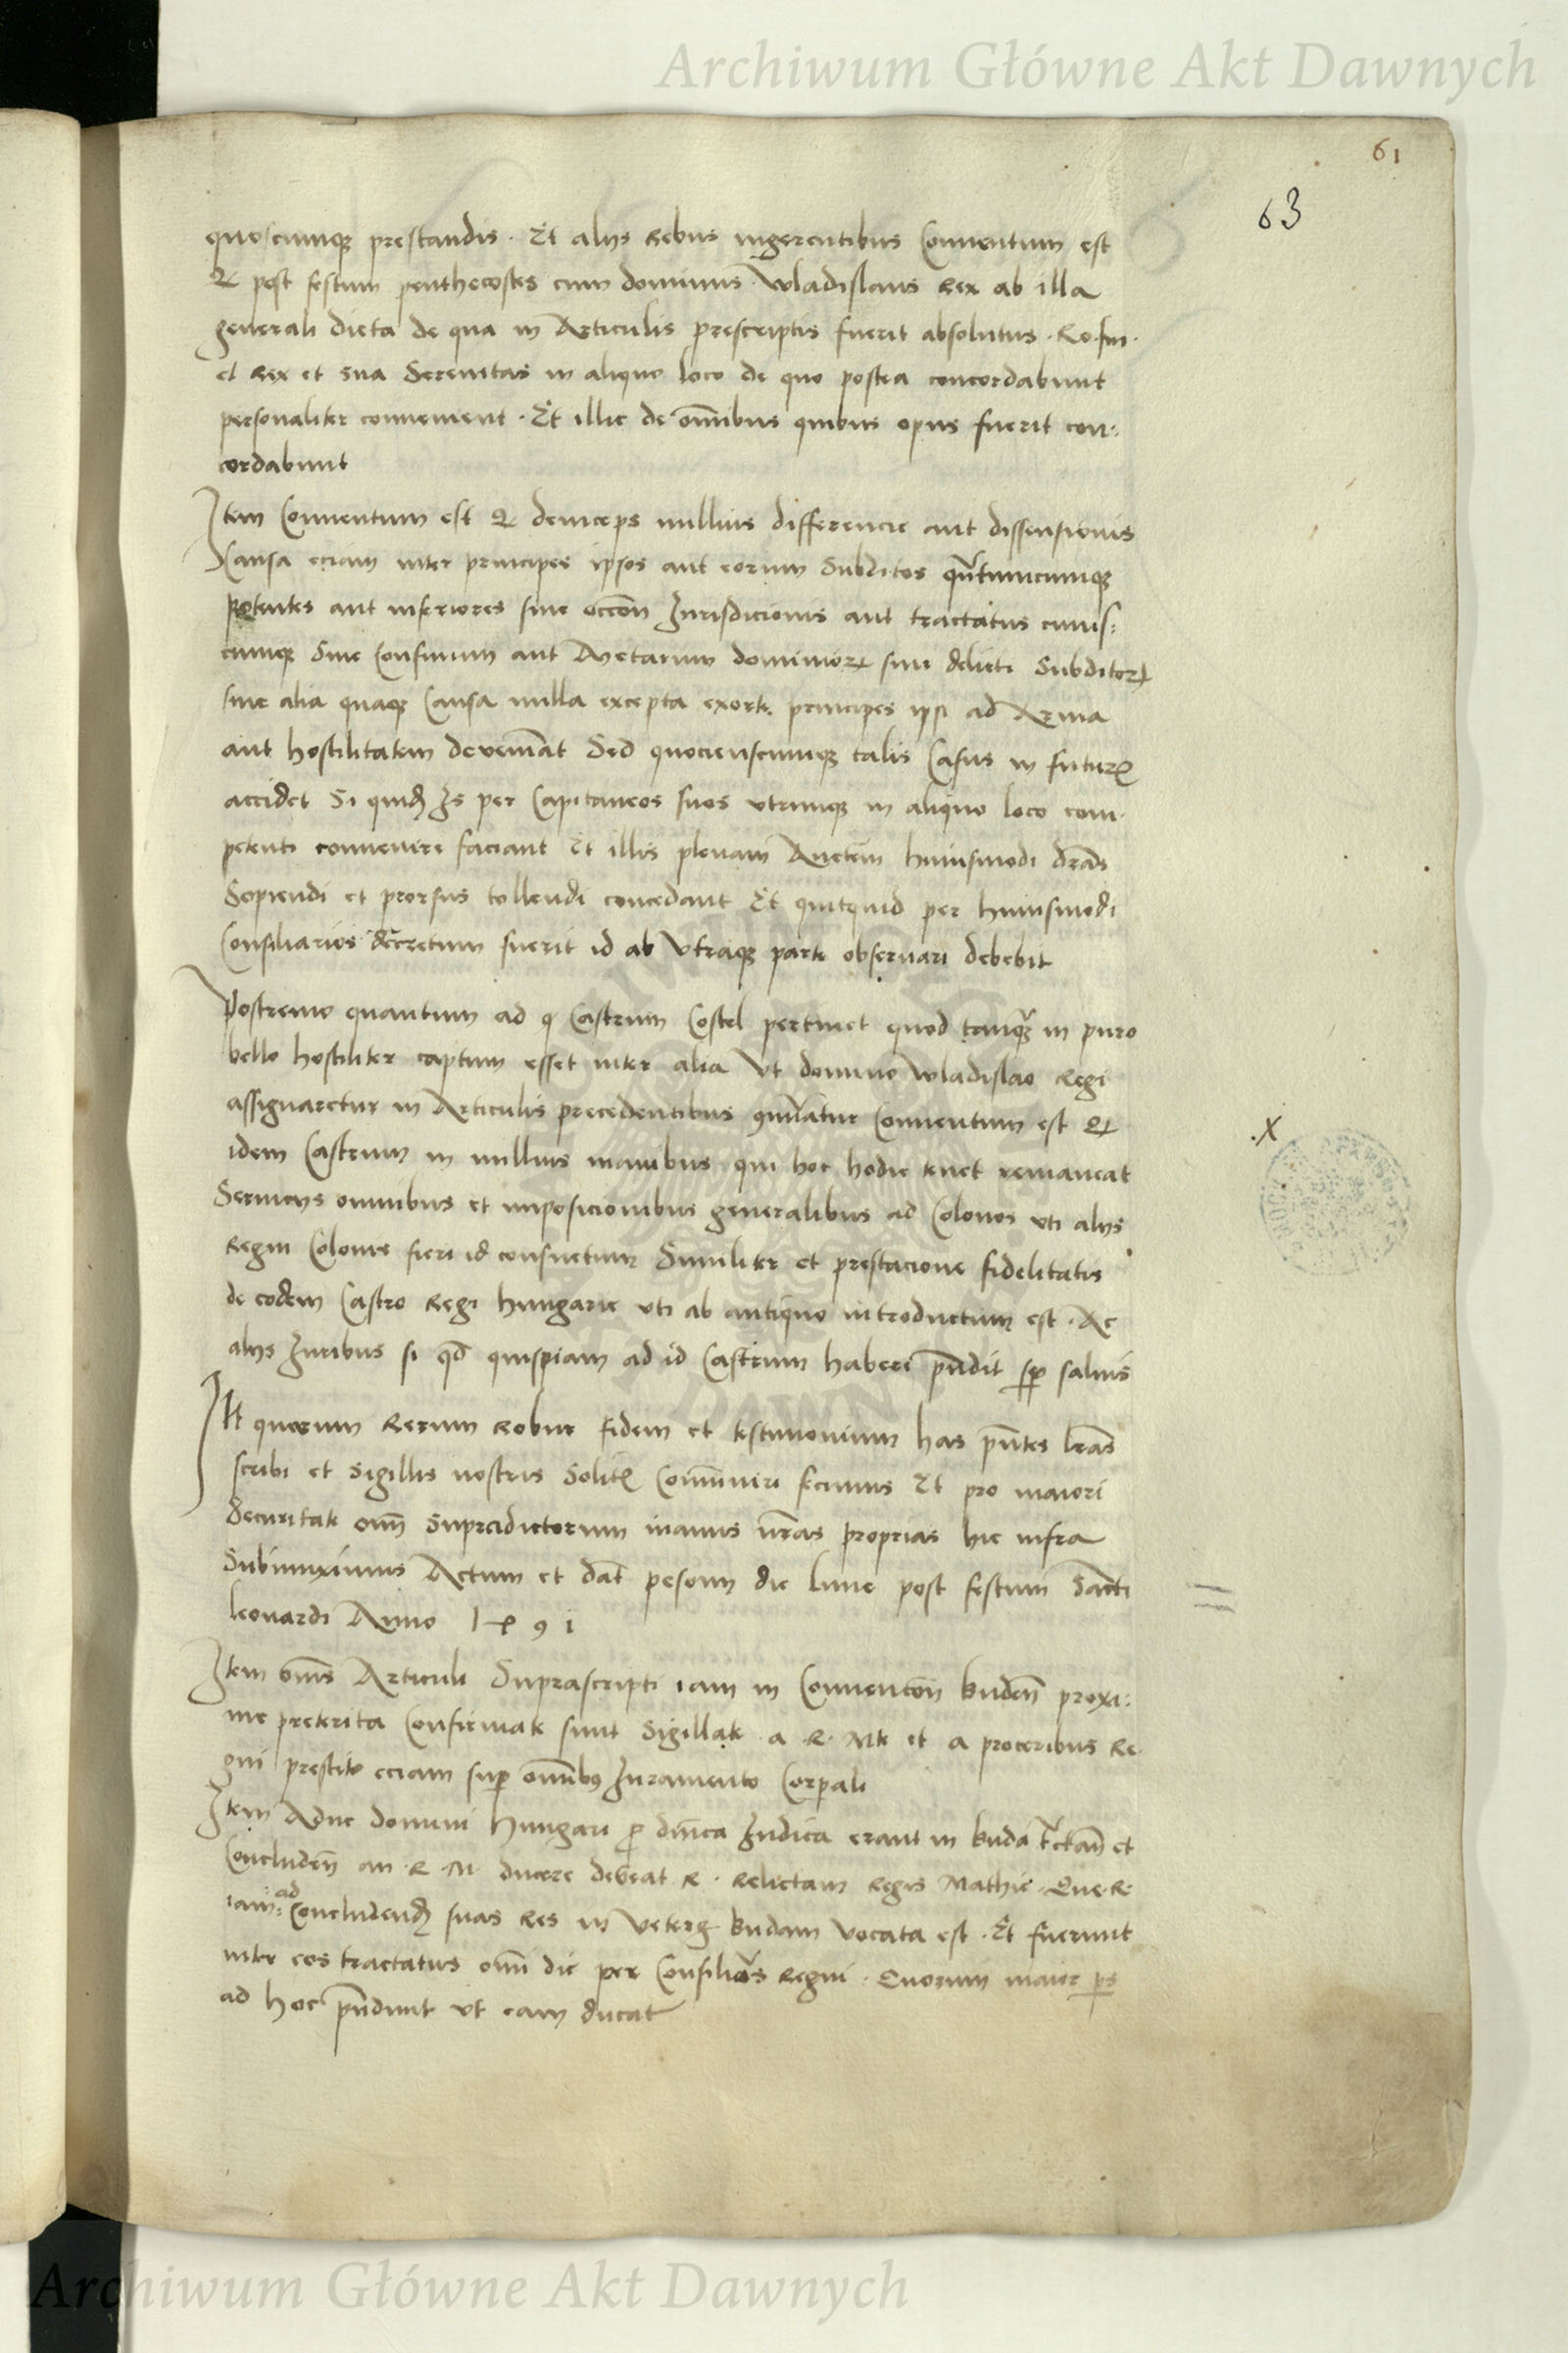 Archiwum Główne Akt Dawnych
61
63
quoscumque prestandis. Et aliis Rebus ingerentibus Conventum est
Q post festum penthecostes cum dominus Wladislaus Rex ab illa
generali dieta de qua in Articulis prescriptis fuerit absolutus. Ro. Im.
et Rex et sua Serenitas in aliquo loco de quo postea concordabunt
personaliter convenient. Et illic de omnibus quibus opus fuerit con:
cordabunt
Item Conventum est Q deinceps nullius differencie aut dissensionis
Causa eciam inter principes ipsos aut eorum Subditos quantumcumque
potentes aut inferiores sive occon Jurisdicionis aut tractatus cuius:
cumque Sive Confinium aut Metarum dominiorum sive delicti Subditorum
sive alia quaque Causa nulla excepta exorte principes ipsi ad Arma
aut hostilitatem deveniant Sed quocienscumque talis Casus in futurum
accidet Si quidem Is per Capitaneos suos utrimque in aliquo loco com-
petenti convenire faciant Et illis plenam Auctem huiusmodi dras
Sopiendi et prorsus tollendi concedant Et quitquid per huiusmodi
Consiliarios decretum fuerit id ab Utraque parte observari debebit
Postremo quantum ad q Castrum Costel pertinet quod tanquam in puro
bello hostiliter captum esset inter alia Ut domino Wladislao Regi
assignaretur in Articulis precedentibus continatur Conventum est Q
.X
idem Castrum in nullius manibus qui hoc hodie tenet remaneat
Serviciis omnibus et imposicionibus generalibus ad Colonos uti aliis
Regni Colonis fieri id consuetum Similiter et prestacione fidelitatis
de eodem Castro Regi Hungarie uti ab antiquo introductum est. Ac
aliis Juribus si qd quispiam ad id Castrum habere prendit sp salvis
It quorum Rerum Robur fidem et testimonium has pntes lras
scribi et Sigillis nostris Solitis Communiri fecimus Et pro maiori
Securitate omn Supradictorum manus nras proprias hic infra
Subiunximus Actum et dat posonii die lune post festum Sancti
leonardi Anno 1491
Item omnes Articuli Suprascripti iam in Convencon budens proxi:
me preterita Confirmate sunt Sigillate a R. Mte et a proceribus Re-
gni prestito eciam super omnibus Juramento Corporali
Item Adhuc domini Hungari p dnica Judica erant in buda tractan et
Concluden an R. M. ducere debeat R. Relictam Regis Mathie. Que R.
iam ad Concludend suas Res in Veterem budam vocata est. Et fuerunt
inter eos tractatus omni die per Consilios Regni. Quorum maior pars
ad hoc prendunt ut eam ducat
Archiwum Główne Akt Dawnych